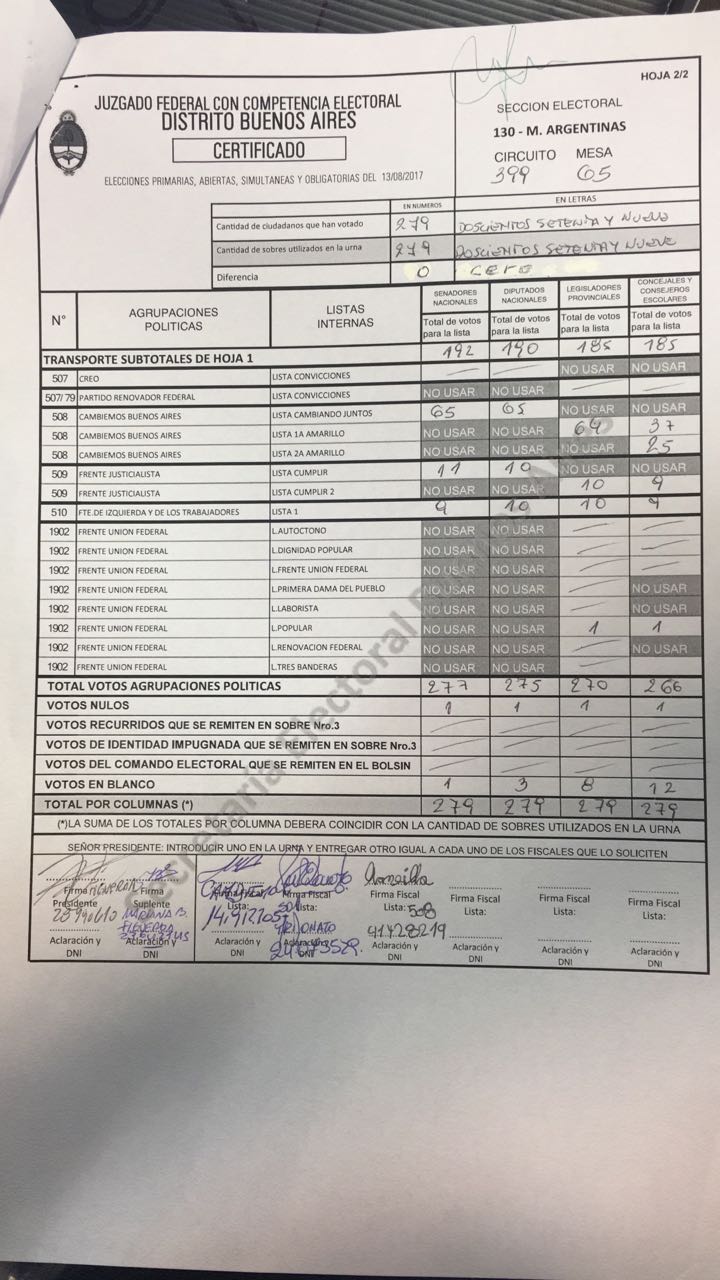 HOJA 2/2
JUZGADO FEDERAL CON COMPETENCIA ELECTORAL
DISTRITO BUENOS AIRES
CERTIFICADO
ELECCIONES PRIMARIAS, ABIERTAS, SIMULTANEAS Y OBLIGATORIAS DEL 13/08/2017
SECCION ELECTORAL
130 - M. ARGENTINAS
CIRCUITO MESA
399 65
EN NUMEROS EN LETRAS
Cantidad de ciudadanos que han votado 279 DOSCIENTOS SETENTA Y NUEVE
Cantidad de sobres utilizados en la urna 279 DOSCIENTOS SETENTA Y NUEVE
Diferencia 0 CERO
N° AGRUPACIONES POLITICAS LISTAS INTERNAS SENADORES NACIONALES DIPUTADOS NACIONALES LEGISLADORES PROVINCIALES CONCEJALES Y CONSEJEROS ESCOLARES
Total de votos para la lista Total de votos para la lista Total de votos para la lista Total de votos para la lista
TRANSPORTE SUBTOTALES DE HOJA 1 192 190 185 185
507 CREO LISTA CONVICCIONES — — NO USAR NO USAR
507/79 PARTIDO RENOVADOR FEDERAL LISTA CONVICCIONES NO USAR NO USAR — —
508 CAMBIEMOS BUENOS AIRES LISTA CAMBIANDO JUNTOS 65 65 NO USAR NO USAR
508 CAMBIEMOS BUENOS AIRES LISTA 1A AMARILLO NO USAR NO USAR 64 37
508 CAMBIEMOS BUENOS AIRES LISTA 2A AMARILLO NO USAR NO USAR NO USAR 25
509 FRENTE JUSTICIALISTA LISTA CUMPLIR 11 10 NO USAR NO USAR
509 FRENTE JUSTICIALISTA LISTA CUMPLIR 2 NO USAR NO USAR 10 9
510 FTE.DE IZQUIERDA Y DE LOS TRABAJADORES LISTA 1 9 10 10 9
1902 FRENTE UNION FEDERAL L.AUTOCTONO NO USAR NO USAR — —
1902 FRENTE UNION FEDERAL L.DIGNIDAD POPULAR NO USAR NO USAR — —
1902 FRENTE UNION FEDERAL L.FRENTE UNION FEDERAL NO USAR NO USAR — —
1902 FRENTE UNION FEDERAL L.PRIMERA DAMA DEL PUEBLO NO USAR NO USAR — NO USAR
1902 FRENTE UNION FEDERAL L.LABORISTA NO USAR NO USAR — NO USAR
1902 FRENTE UNION FEDERAL L.POPULAR NO USAR NO USAR 1 1
1902 FRENTE UNION FEDERAL L.RENOVACION FEDERAL NO USAR NO USAR — NO USAR
1902 FRENTE UNION FEDERAL L.TRES BANDERAS NO USAR NO USAR — —
TOTAL VOTOS AGRUPACIONES POLITICAS 277 275 270 266
VOTOS NULOS 1 1 1 1
VOTOS RECURRIDOS QUE SE REMITEN EN SOBRE Nro.3 — — — —
VOTOS DE IDENTIDAD IMPUGNADA QUE SE REMITEN EN SOBRE Nro.3 — — — —
VOTOS DEL COMANDO ELECTORAL QUE SE REMITEN EN EL BOLSIN — — — —
VOTOS EN BLANCO 1 3 8 12
TOTAL POR COLUMNAS (*) 279 279 279 279
(*)LA SUMA DE LOS TOTALES POR COLUMNA DEBERA COINCIDIR CON LA CANTIDAD DE SOBRES UTILIZADOS EN LA URNA
SEÑOR PRESIDENTE: INTRODUCIR UNO EN LA URNA Y ENTREGAR OTRO IGUAL A CADA UNO DE LOS FISCALES QUE LO SOLICITEN
Firma Presidente Firma Suplente Firma Fiscal Lista: Firma Fiscal Lista: Firma Fiscal Lista: 508 Firma Fiscal Lista: Firma Fiscal Lista: Firma Fiscal Lista:
MARIANA B. FIGUEROA
41428219
Aclaración y DNI Aclaración y DNI Aclaración y DNI Aclaración y DNI Aclaración y DNI Aclaración y DNI Aclaración y DNI Aclaración y DNI